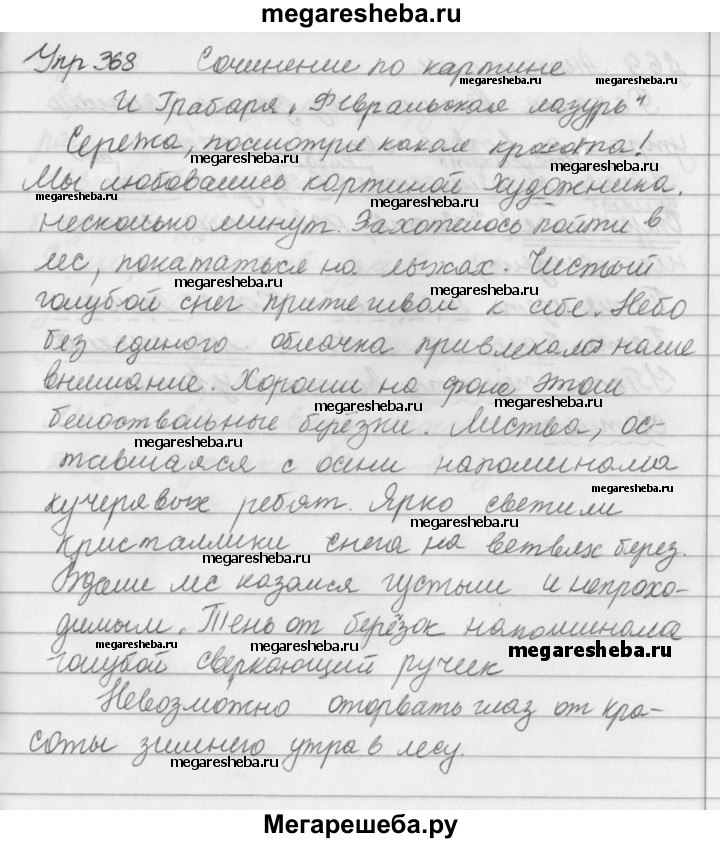 megaresheba.ru
Упр 368 Сочинение по картине
И Грабаря „Февральская лазурь"
Сережа, посмотри какая красота!
megaresheba.ru
megaresheba.ru
Мы любовались картиной художника.
megaresheba.ru
megaresheba.ru
несколько минут. Захотелось пойти в
лес, покататься на лыжах. Чистый
megaresheba.ru
megaresheba.ru
голубой снег притягивал к себе. Небо
без единого облачка привлекало наше
megaresheba.ru
внимание. Хороши на фоне этом
megaresheba.ru
белоствольные берёзки. Листва, ос-
megaresheba.ru
тавшаяся с осени напоминала
megaresheba.ru
кучерявых ребят. Ярко светили
megaresheba.ru
кристаллики снега на ветвях берез.
megaresheba.ru
Вдали лес казался густым и непрохо-
димым. Тень от берёзок напоминала
megaresheba.ru
megaresheba.ru
голубой сверкающий ручеек
Невозможно оторвать глаз от кра-
соты зимнего утра в лесу.
megaresheba.ru
Мегарешеба.ру